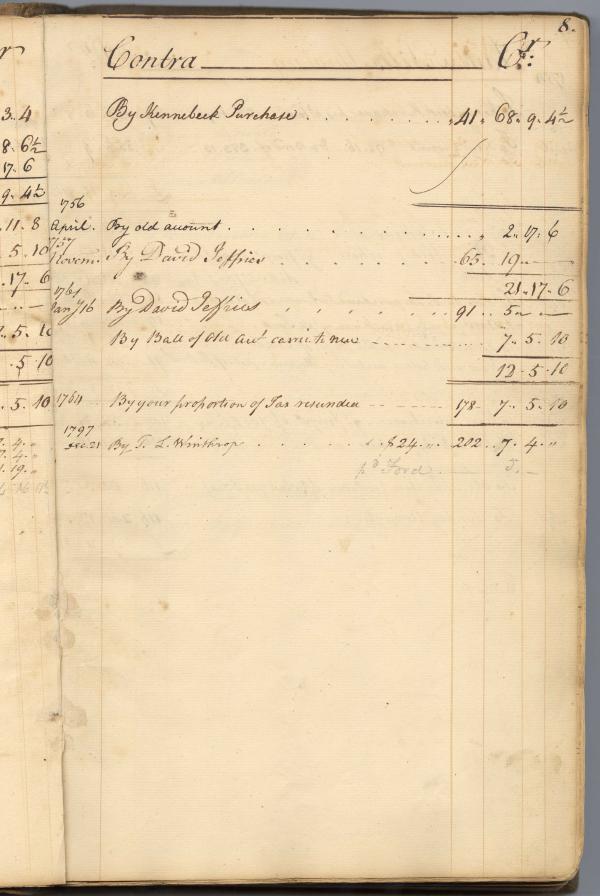 8.
Contra Cr.:
By Kennebeck Purchase . . . . . . . 41. 68. 9. 4½
1756
April. By old acount . . . . . . . 2. 17. 6
1757
Novem. By David Jeffries . . . . . . 65. 19. —
21. 17. 6
1761
Jany 16 By David Jeffries . . . . . . 91. 5. —
By Ball of Old Act 7. 5. 10
12. 5. 10
1764 By your proportion of Tax refunded 178 7. 5. 10
1797
Dec. 21 By T. L. Winthrop . . . . . $24. 〃 202. 7. 4. 〃
pd Ford 5. —
3. 4
8. 6½
17. 6
9. 4½
. 11. 8
. 5. 10
. 17. 6
. 5. 10
. 5. 10
. 5. 10
7. 4. 〃
1. 19. 〃